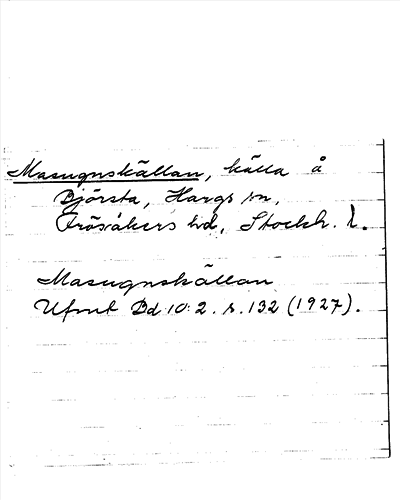 Masugnskällan, källa å
Djörsta, Hargs sn,
Frösåkers hd, Stockh. l.
Masugnskällan
Ufmt Bd 10:2. s. 132 (1927).